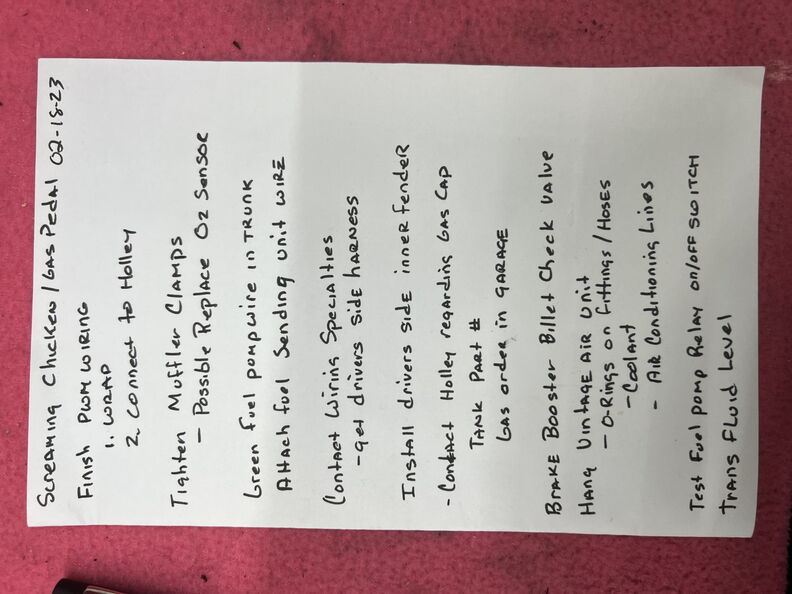 Screaming Chicken / Gas Pedal 02-18-23
Finish PWM WIRING
1. WRAP
2. Connect to Holley
Tighten Muffler Clamps
- Possible Replace O2 Sensor
Green fuel pump wire in TRUNK
Attach fuel Sending unit WIRE
Contact Wiring Specialties
- get drivers side harness
Install drivers side inner fender
- Contact Holley regarding Gas Cap
TANK Part #
Gas order in GARAGE
Brake Booster Billet Check Valve
Hang Vintage Air Unit
- O-Rings on fittings / Hoses
- Coolant
- Air Conditioning Lines
Test Fuel pump Relay on/off SWITCH
Trans Fluid Level